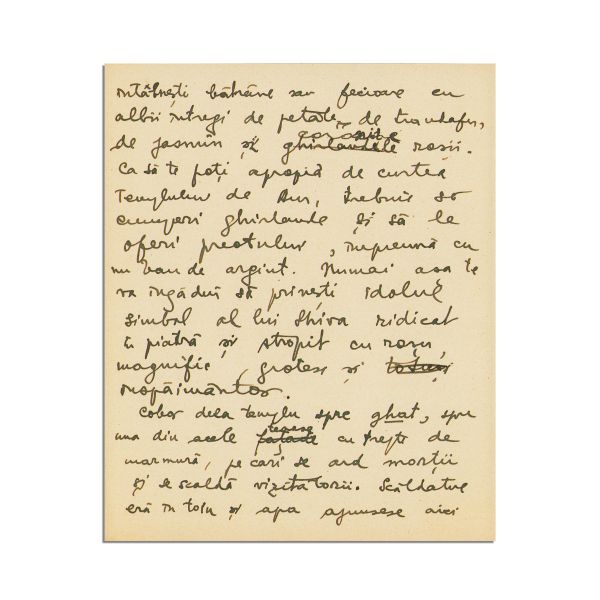 întâlnești bătrâne sau fecioare cu
albii întregi de petale de trandafir,
coronițe
de jasmin și ghirlandele roșii.
Ca să te poți apropia de curtea
Templului de Aur, trebuie să
cumperi ghirlande și să le
oferi preotului, împreună cu
un ban de argint. Numai așa te
va îngădui să privești idolul
simbol al lui Shiva ridicat
în piatră și stropit cu roșu,
magnific, grotesc și totuși
înspăimântător.
Cobor dela templu spre ghat, spre
terase
una din acele fațade cu trepte de
marmură, pe cari se ard morții
și se scaldă vizitatorii. Scăldatul
era în toiu și apa ajunsese aici